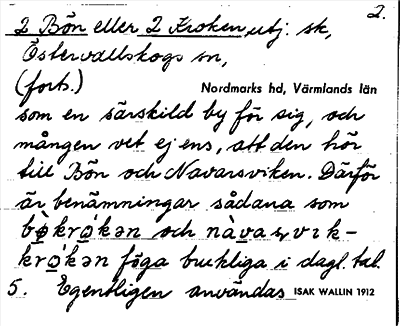 2.
2 Bön eller 2 Kroken, utj. sk,
Östervallskogs sn,
(forts.) Nordmarks hd, Värmlands län
som en särskild by för sig, och
mången vet ej ens, att den hör
till Bön och Navarsviken. Därför
är benämningar sådana som
bø̀krǫ́kən och nàvaṣvɪk-
krǫ́kən föga brukliga i dagl. tal.
5. Egentligen användas ISAK WALLIN 1912